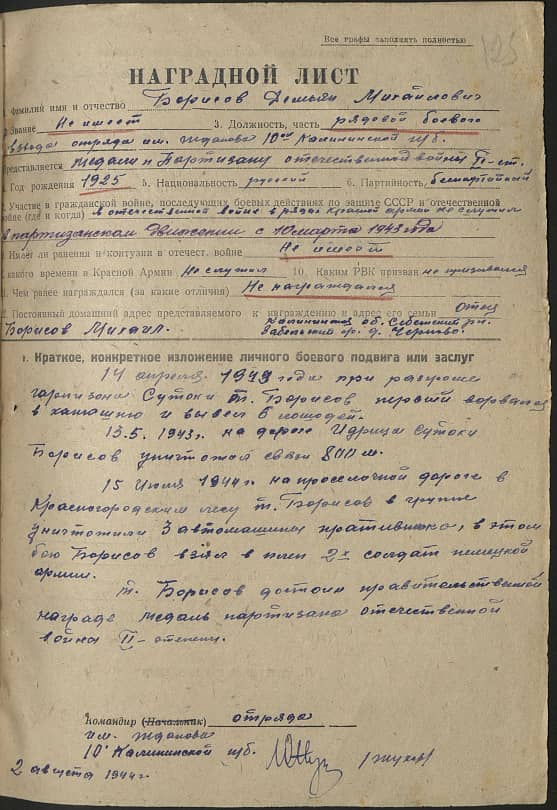 Все графы заполнять полностью
125
НАГРАДНОЙ ЛИСТ
1. Фамилия имя и отчество Борисов Демьян Михайлович
2. Звание Не имеет 3. Должность, часть рядовой боевого
взвода отряда им. Жданова 10ой Калининской п/б.
Представляется медали „Партизану отечественной войны II-ст.
4. Год рождения 1925 5. Национальность русский 6. Партийность, беспартийный
7. Участие в гражданской войне, последующих боевых действиях по защите СССР и отечественной
войне (где и когда) в отечественной войне в рядах красной армии не служил
в партизанском движении с 10 марта 1943 года
8. Имеет ли ранения и контузии в отечест. войне Не имеет
С какого времени в Красной Армии Не служил 10. Каким РВК призван не призывался
11. Чем ранее награждался (за какие отличия) Не награждался
12. Постоянный домашний адрес представляемого к награждению и адрес его семьи Отец
Борисов Михаил. Калининская об. Себежский р-н.
д. Чернево.
1. Краткое, конкретное изложение личного боевого подвига или заслуг
14 апреля 1943 года при разгроме
гарнизона Сутоки т. Борисов первый ворвался
в конюшню и вывел 6 лошадей.
15.5. 1943г. на дороге Идрица Сутоки
Борисов уничтожил связи 800 м.
15 Июля 1944г на проселочной дороге в
Красногородском лесу т. Борисов в группе
уничтожили 3 автомашины противника, в этом
бою Борисов взял в плен 2х солдат немецкой
армии.
т. Борисов достоин правительственной
награде медаль партизана отечественной
война II- степени.
Командир (Начальник) отряда
им. Жданова
10й Калининской п/б. /Жухов/
2 августа 1944г.